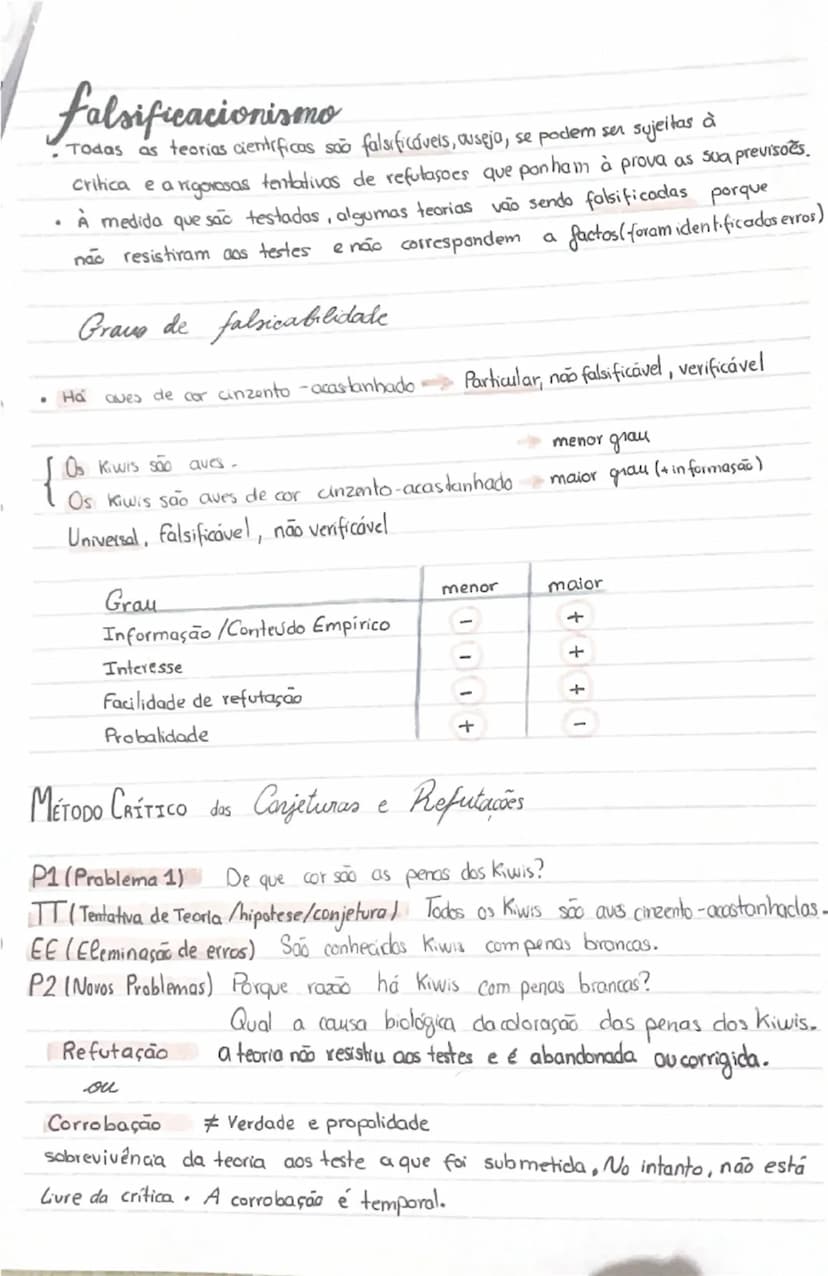 falsificacionismo
• Todas as teorias cientificas são falsificáveis, ouseja, se podem ser sujeitas à
critica e a rigorosas tentativas de refutaçoes que ponham à prova as sua previsoẽs.
• À medida que são testadas, algumas teorias vão sendo falsificadas porque
não resistiram aos testes e não correspondem a factos (foram identificados erros)
Graus de falsicabilidade
• Há aves de cor cinzento-acastanhado → Particular, não falsificável, verificável
{ Os Kiwis são aves. → menor grau
Os Kiwis são aves de cor cinzento-acastanhado → maior grau (+ informação)
Universal, Falsificável, não verificável
Grau menor maior
Informação/Conteúdo Empírico - +
Interesse - +
Facilidade de refutação - +
Probalidade + -
MÉTODO CRÍTICO das Conjeturas e Refutações
P1 (Problema 1) De que cor são as penas dos Kiwis?
TT (Tentativa de Teoria /hipotese/conjetura) Todos os Kiwis são aves cinzento-acastanhadas.
EE (Eleminação de erros) São conhecidos Kiwis com penas brancas.
P2 (Novos Problemas) Porque razão há Kiwis com penas brancas?
Qual a causa biológica da coloração das penas dos Kiwis.
Refutação a teoria não resistiu aos testes e é abandonada ou corrigida.
ou
Corrobação ≠ Verdade e propalidade
sobrevivência da teoria aos teste a que foi submetida. No intanto, não está
livre da critica. A corrobação é temporal.